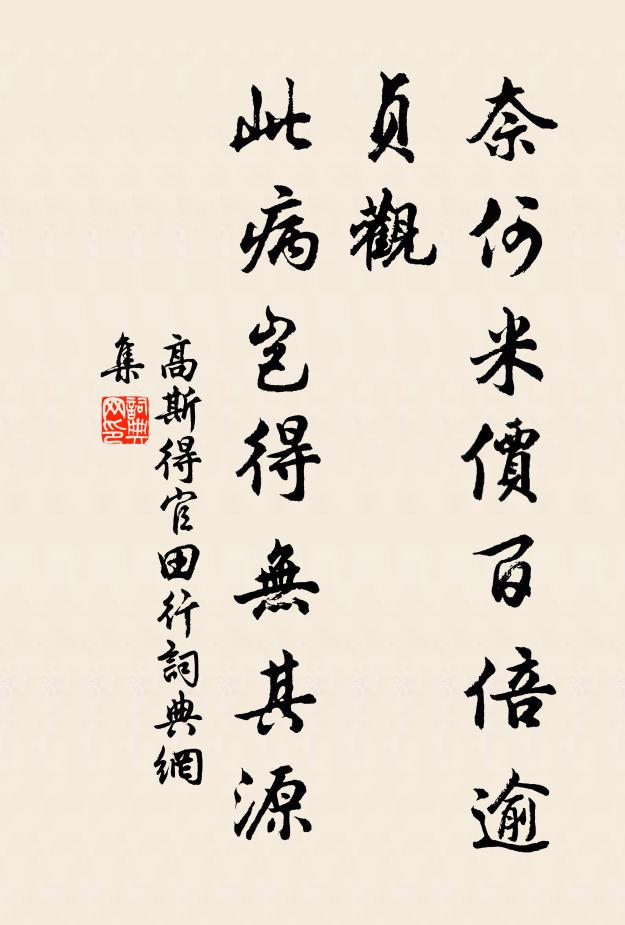 奈何米價百倍逾
貞觀
此病岂得無其源
高斯得官田行詞典網
集
詞典
网印